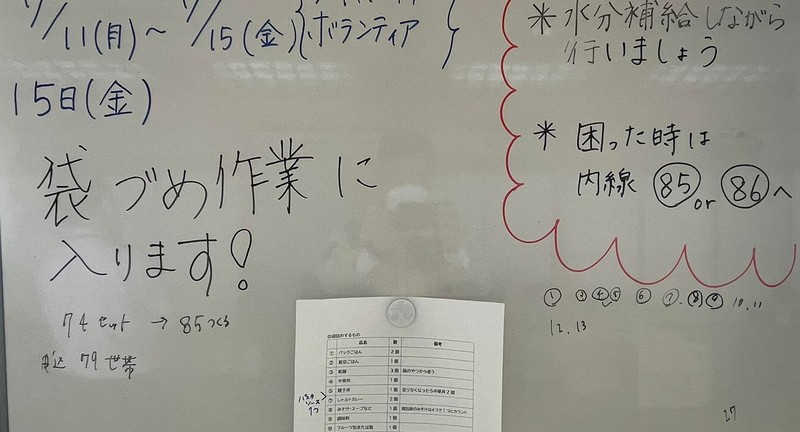 7/11(月)～7/15(金)
ボランティア
15日(金)
袋づめ作業に
入ります!
74セット → 85つくる
申込 79世帯
＊水分補給しながら
行いましょう
＊困った時は
内線 85 or 86へ
① ③ ④ ⑤ ⑥ ⑦ ⑧ ⑨ 10. 11
12. 13
27
品名 数 備考
① パックごはん 2個
② 1個
③ 乾麺 3個
④ 中華丼 1個
⑤ 親子丼 1個 足りなくなったら中華丼2個
⑦ レトルトカレー 2個
⑧ みそ汁・スープなど 1個
⑨ 調味料 1個
⑩ フルーツ缶または 1個